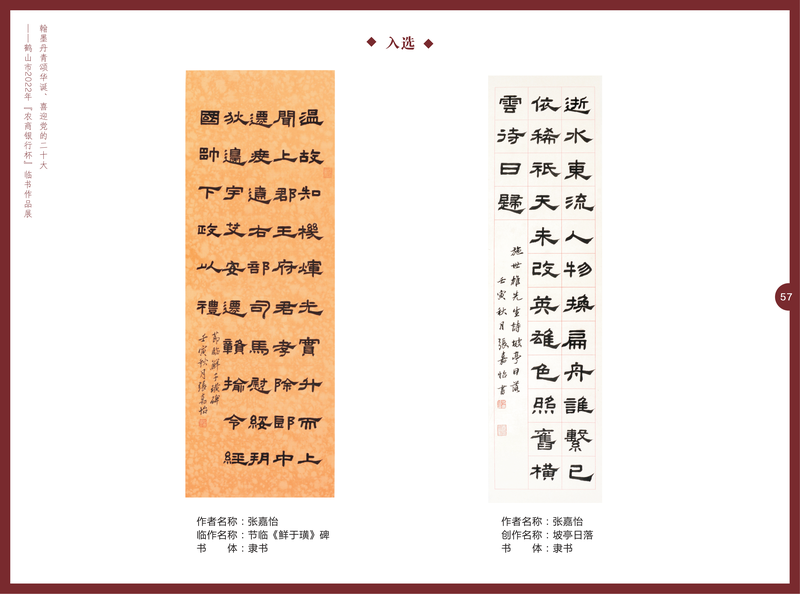 翰墨丹青颂华诞，喜迎党的二十大
——鹤山市2022年『农商银行杯』临书作品展
入选
温故知機煇光實升而上
聞上郡王府君孝除郎中
遷度遼右部司馬慰綏朔
狄邊宇艾安遷贛揄令經
國帥下政以禮
節臨鮮于璜碑
壬寅秋月張嘉怡
作者名称：张嘉怡
临作名称：节临《鲜于璜》碑
书　　体：隶书
逝水東流人物換扁舟誰繫已
依稀祇天未改英雄色照舊橫
雲待日歸
施世雄先生詩坡亭日落
壬寅秋月張嘉怡書
作者名称：张嘉怡
创作名称：坡亭日落
书　　体：隶书
57